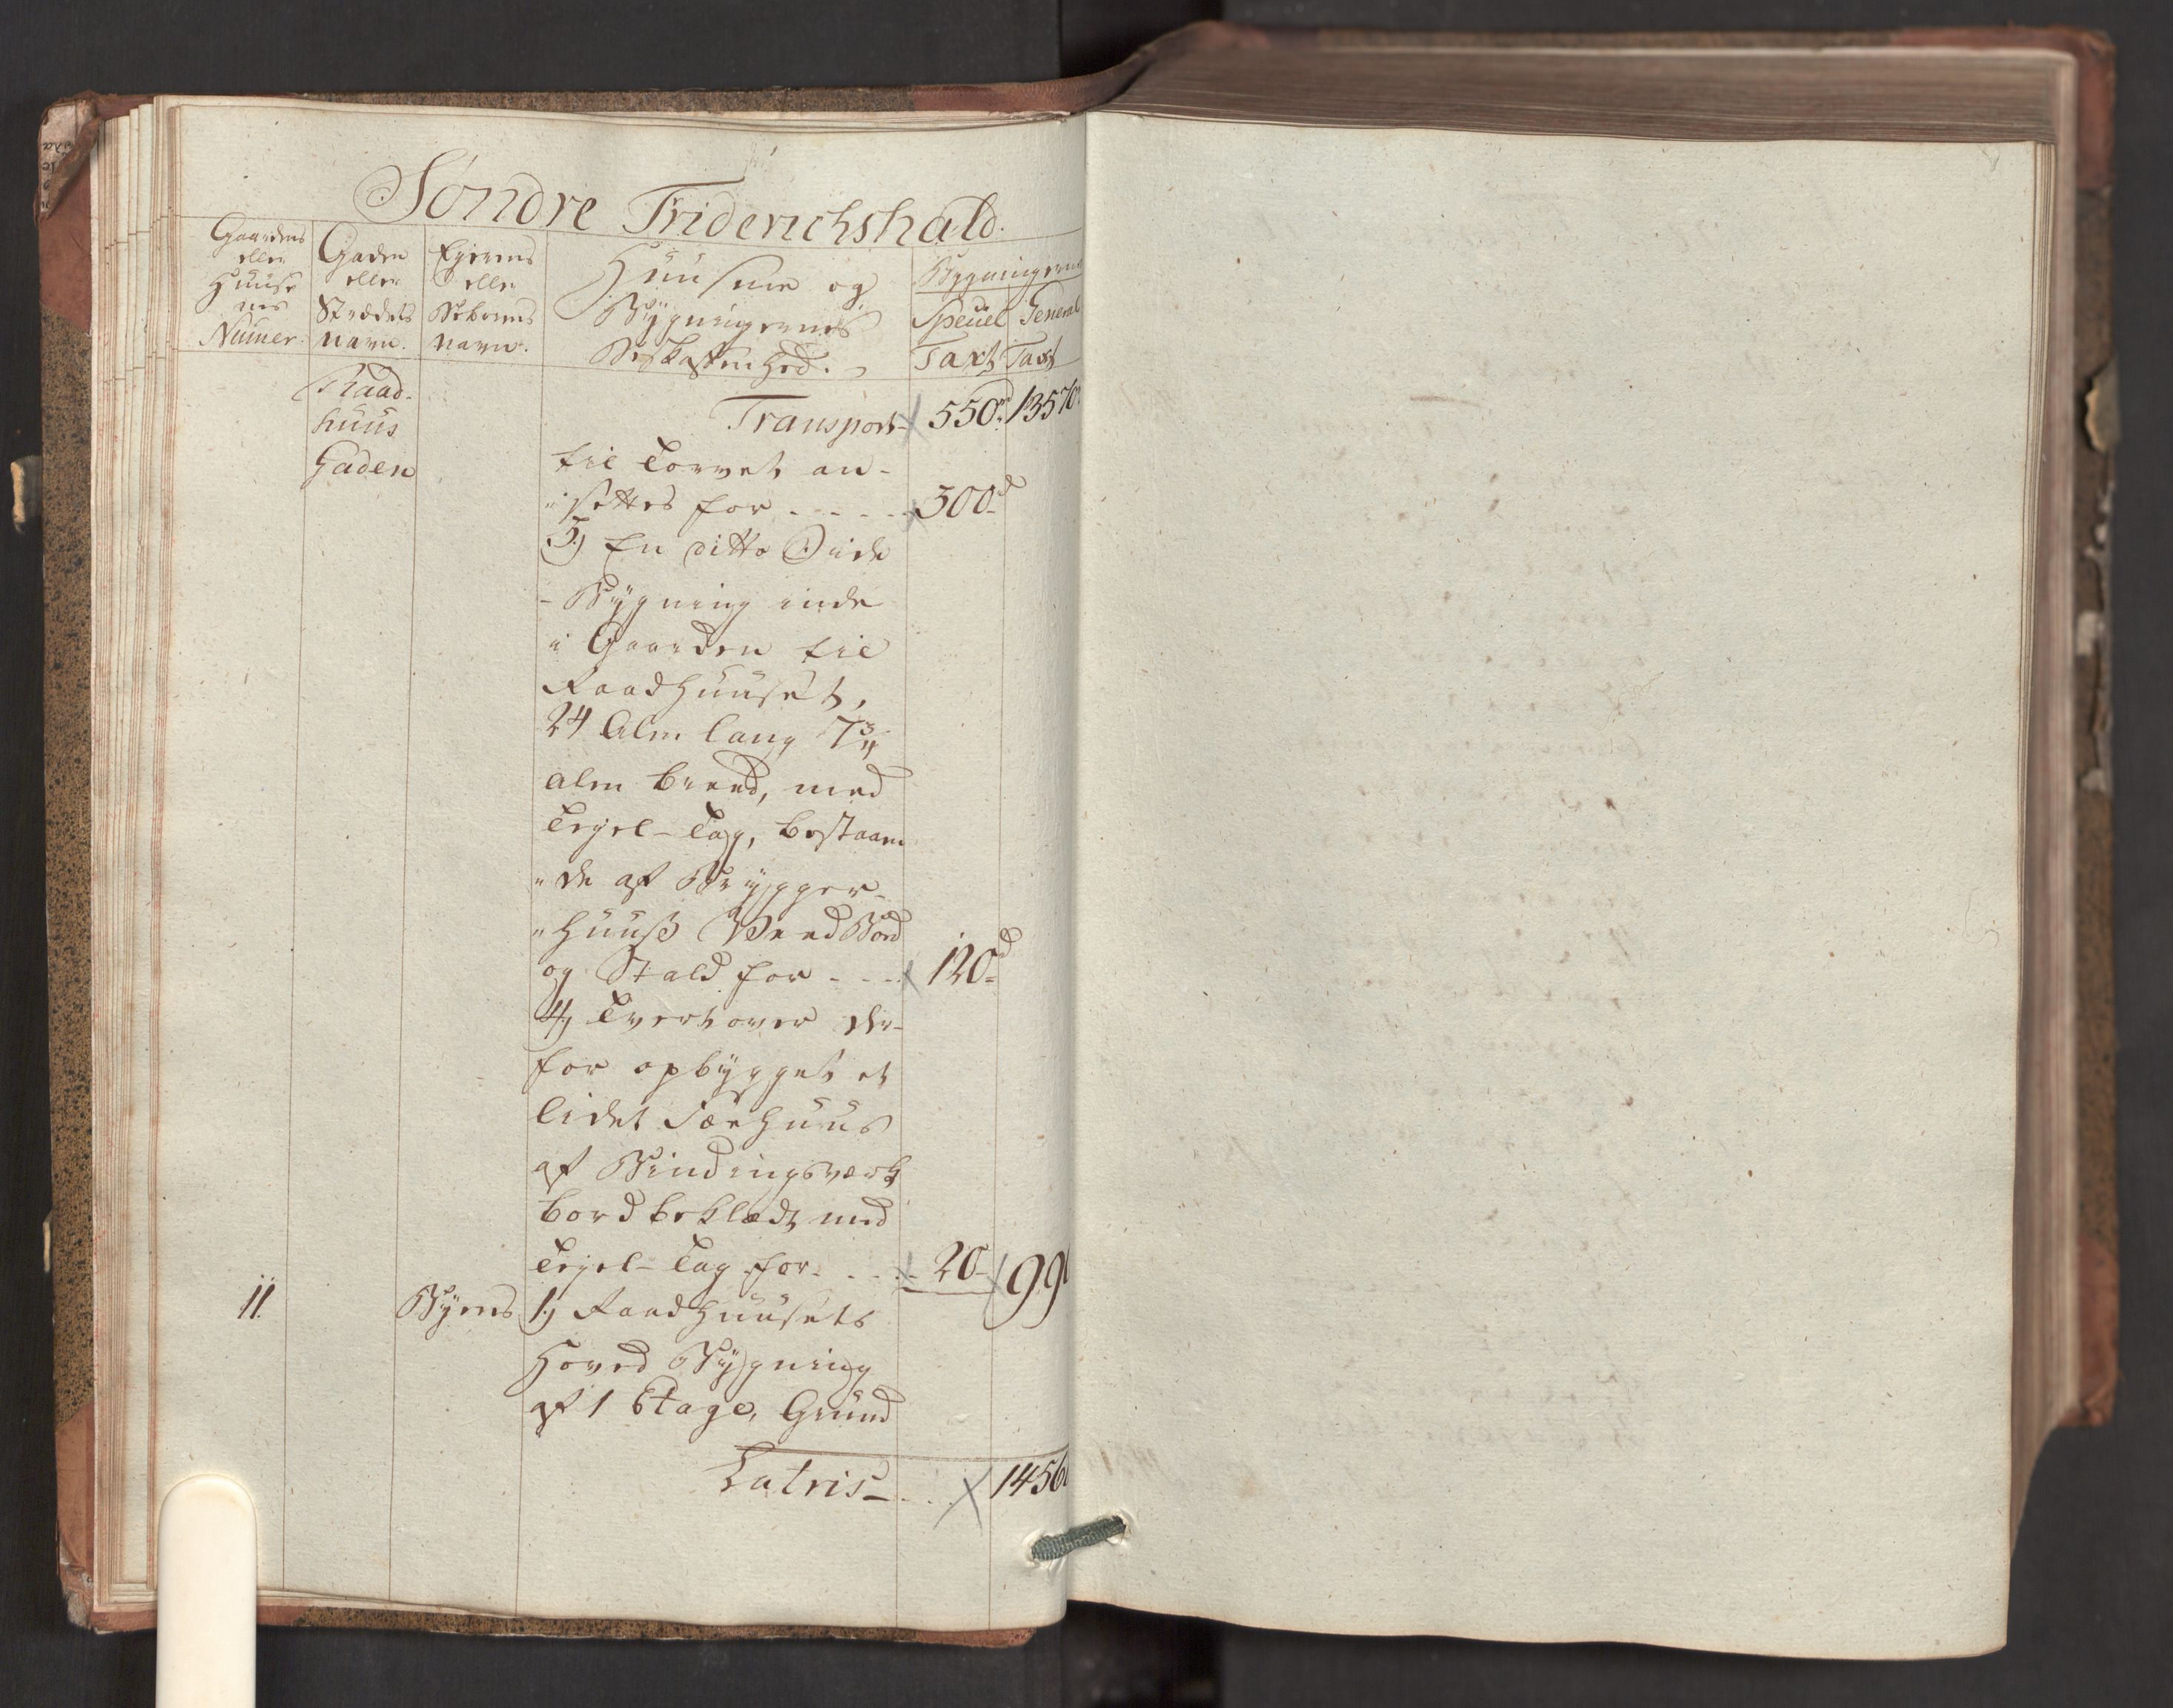 Söndre Friderichshald.
Gaardens
eller
Huuse
nes
Numer.
Gaden
eller
Strædets
navn.
Eyerens
eller
Beboerens
navn.
Huusene og
Bÿgningernes
Beskaffenhed.
Bygningernes
Speciel General
Taxt Taxt
Raad-
huus
Gaden
Transport 550d 13570
til Torvet an-
settes for - - - - 300d
3) En ditto Side
Bÿgning inde
i Gaarden til
Raadhuuset,
24 Alen lang 7 3/4
alen breed, med
Tegel-Tag, bestaaen
de af Brygger-
huuß Veed Bod
og Stald for - - - 120d
4) Tvert over der-
for opbÿgget et
lidet Færhuus
af Bindingsværk
bordbeklædt med
Tegel-Tag for. - - 20 99
11. Bÿens 1) Raadhuusets
Hoved Bÿgning
af 1 Etage, Grund
Latris - . . 1456